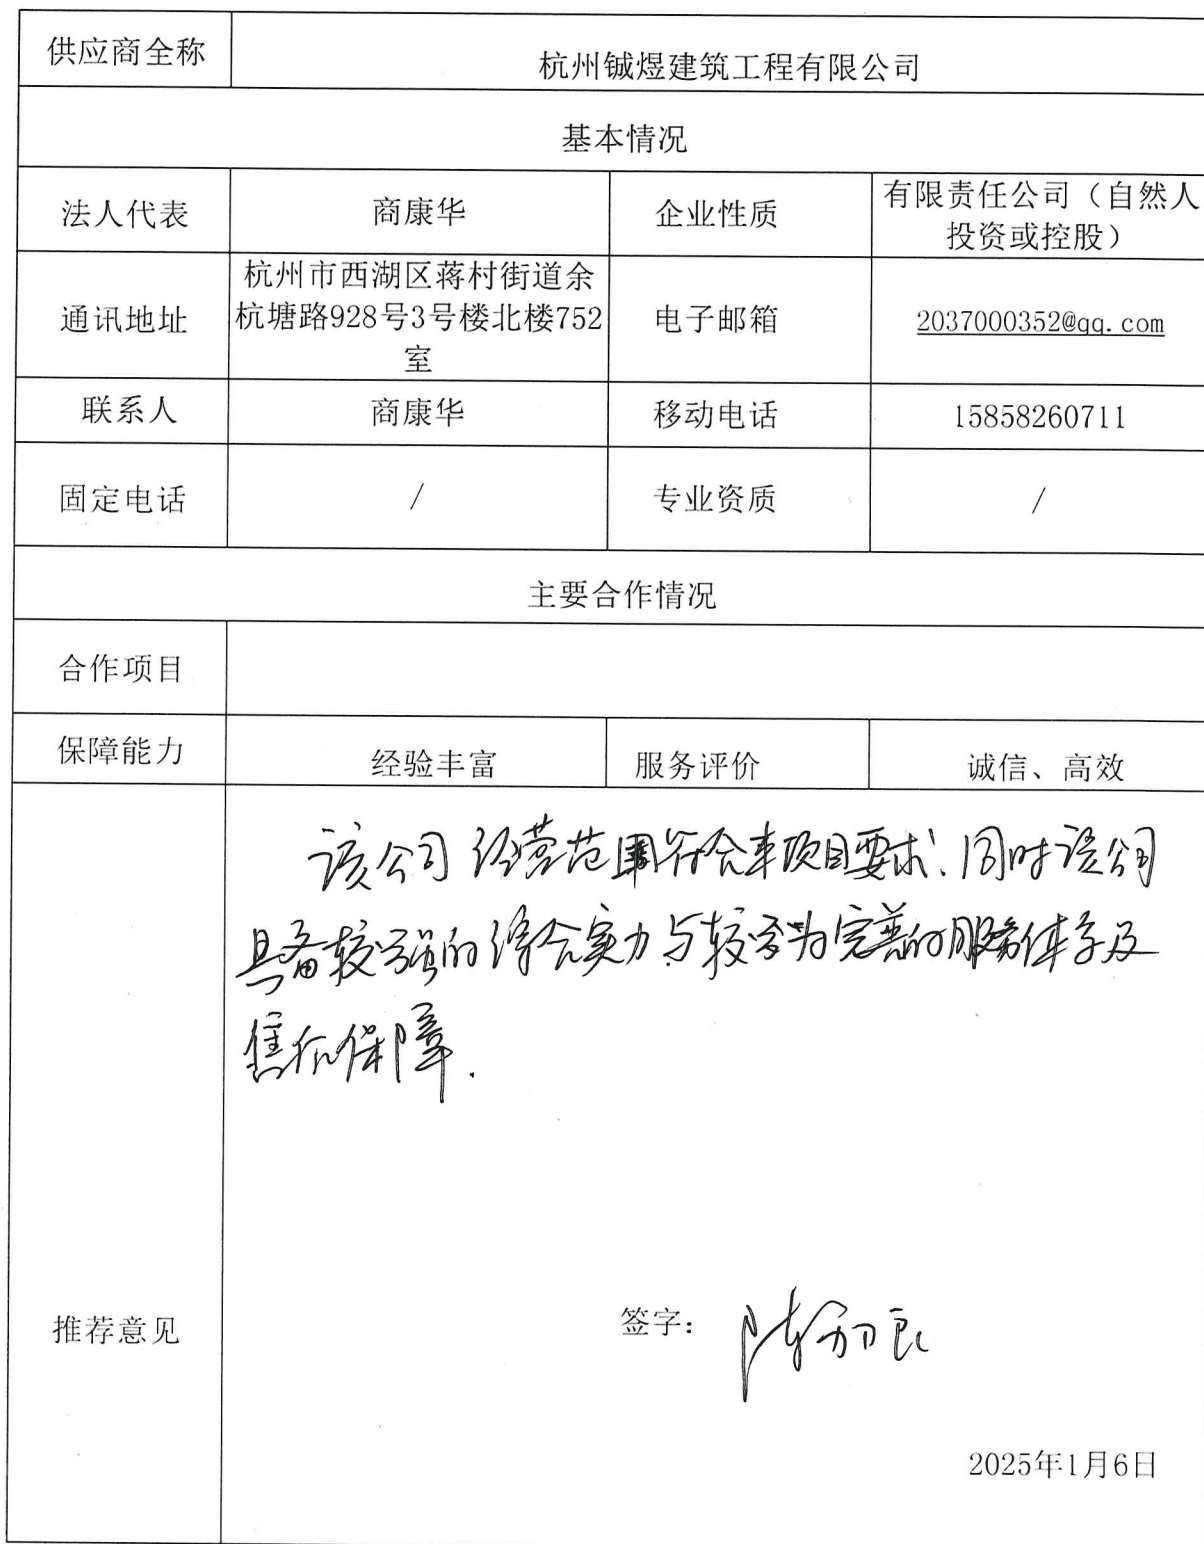 供应商全称 杭州铖煜建筑工程有限公司
基本情况
法人代表 商康华 企业性质 有限责任公司（自然人
投资或控股）
通讯地址 杭州市西湖区蒋村街道余
杭塘路928号3号楼北楼752
室
电子邮箱 2037000352@qq.com
联系人 商康华 移动电话 15858260711
固定电话 / 专业资质 /
主要合作情况
合作项目
保障能力 经验丰富 服务评价 诚信、高效
推荐意见
该公司经营范围符合本项目要求、同时该公司
具备较强的综合实力与较为完善的服务体系及
售后保障.
签字：
2025年1月6日